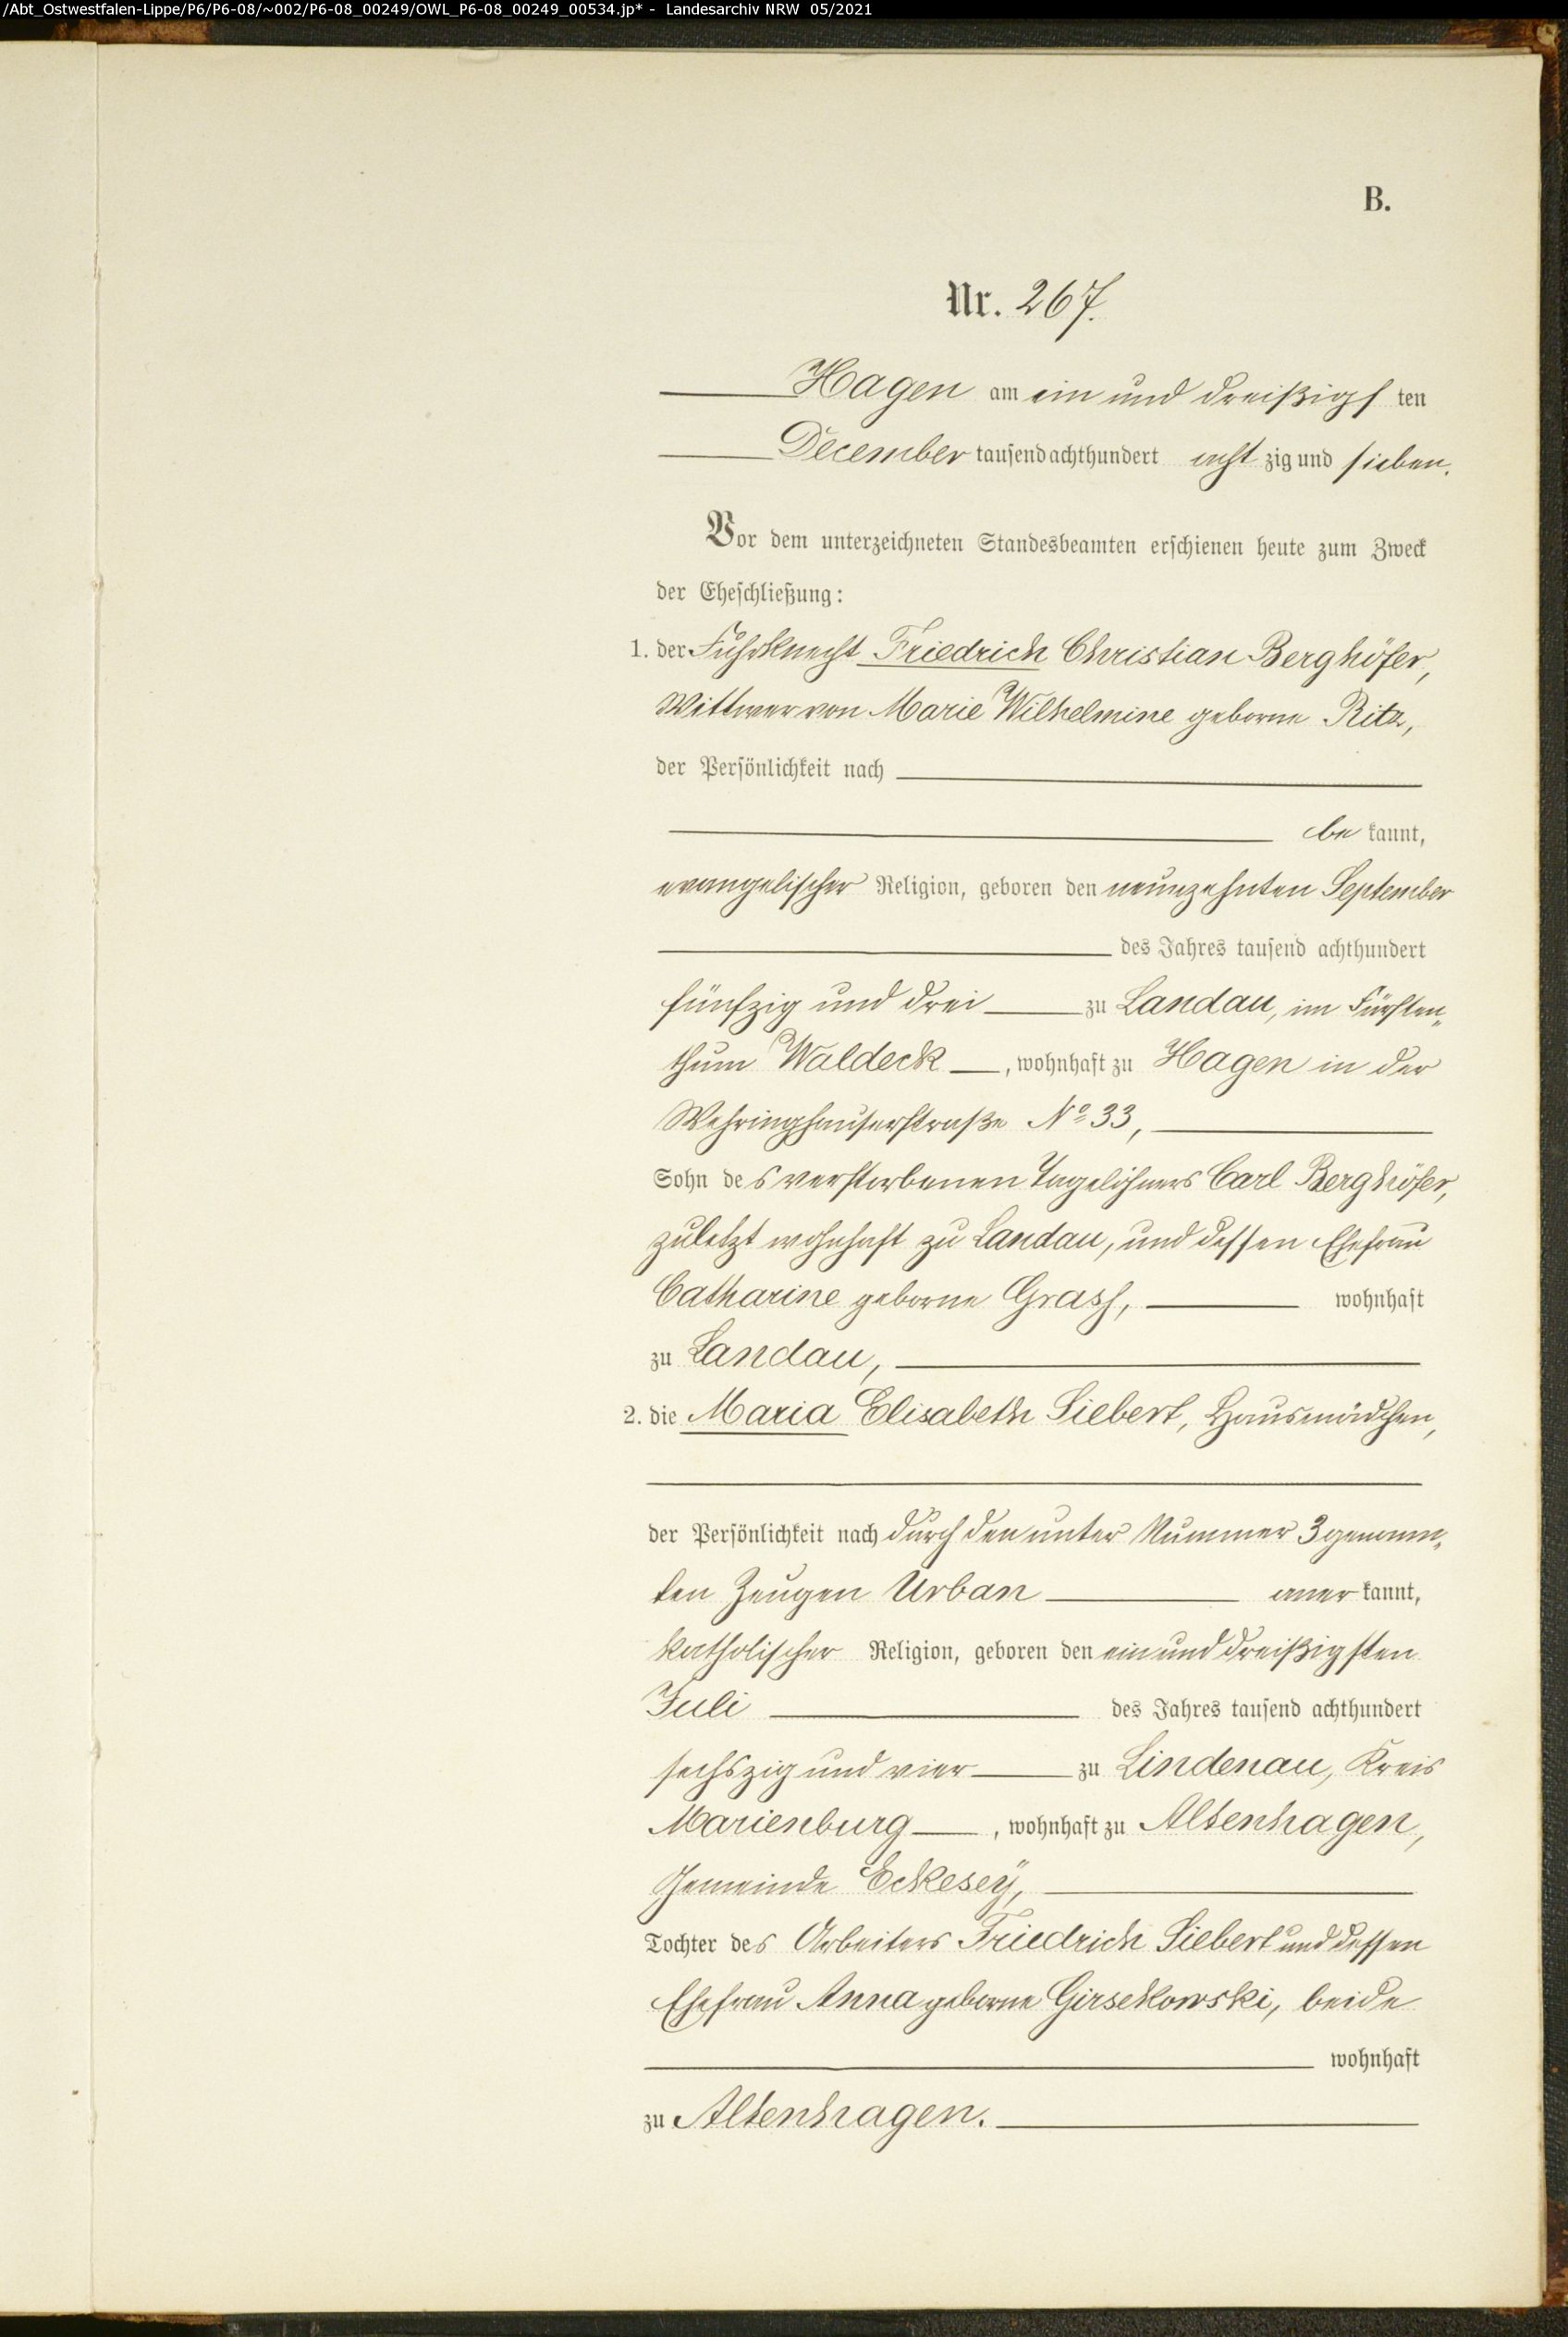 /Abt_Ostwestfalen-Lippe/P6/P6-08/~002/P6-08_00249/OWL_P6-08_00249_00534.jp* - Landesarchiv NRW 05/2021
B.
Nr. 267.
Hagen am ein und dreißigs ten
December tausendachthundert acht zig und sieben.
Vor dem unterzeichneten Standesbeamten erschienen heute zum Zweck
der Eheschließung:
1. der Fuhrknecht Friedrich Christian Berghöfer,
Wittwer von Marie Wilhelmine geborne Ritz,
der Persönlichkeit nach
be kannt,
evangelischer Religion, geboren den neunzehnten September
des Jahres tausend achthundert
fünfzig und drei zu Landau, im Fürsten-
thum Waldeck, wohnhaft zu Hagen in der
Wehringhauserstraße No 33,
Sohn des verstorbenen Tagelöhners Carl Berghöfer,
zuletzt wohnhaft zu Landau, und dessen Ehefrau
Catharine geborne Grass, wohnhaft
zu Landau,
2. die Maria Elisabeth Siebert, Hausmädchen,
der Persönlichkeit nach durch den unter Nummer 3 genann-
ten Zeugen Urban aner kannt,
katholischer Religion, geboren den ein und dreißigsten
Juli des Jahres tausend achthundert
sechszig und vier zu Lindenau, Kreis
Marienburg, wohnhaft zu Altenhagen,
Gemeinde Eckesey,
Tochter des Arbeiters Friedrich Siebert und dessen
Ehefrau Anna geborne Girsekowski, beide
wohnhaft
zu Altenhagen.